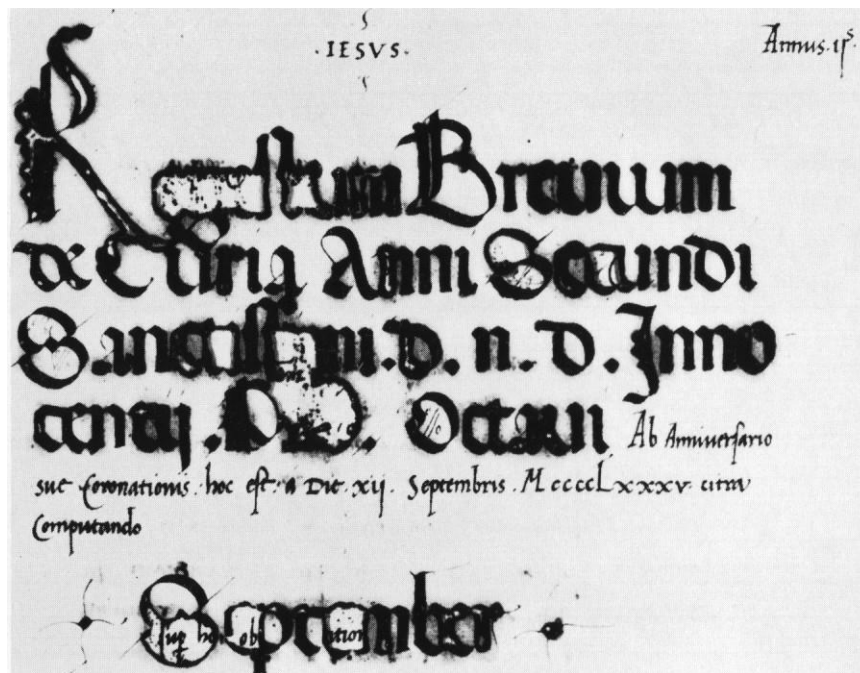 ·IESVS·
Annus·ijs·
Registrum Brevium
de Curia Anni Secundi
Sanctissimi.d.n.d.Inno
centij.PP. Octavi Ab Anniversario
sue Coronationis·hoc est·a Die·xij· Septembris·MccccLxxxv·citra
Computando
September